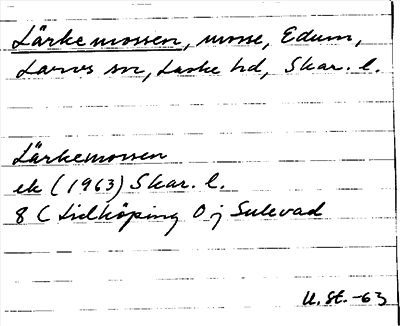 Lärkemossen, mosse, Edum,
Larvs sn, Laske hd, Skar. l.
Lärkemossen
ek (1963) Skar. l.
8 C Lidköping 0 j Sulevad
U. St. -63